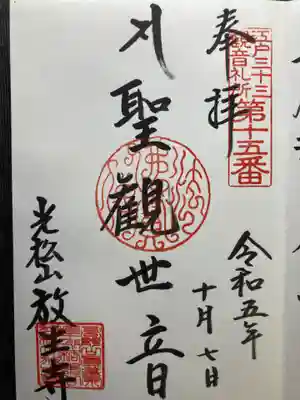 奉拝
江戸三十三
観音札所
第十五番
聖觀世音
令和五年
十月七日
光松山放生寺